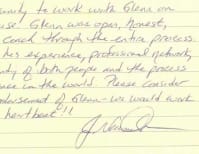 unity to work with Glenn on
use. Glenn was open, honest,
coach through the entire process.
his experience, professional network
ity of both people and the process
ence in the world. Please consider
endorsement of Glenn - we would work
heartbeat!!